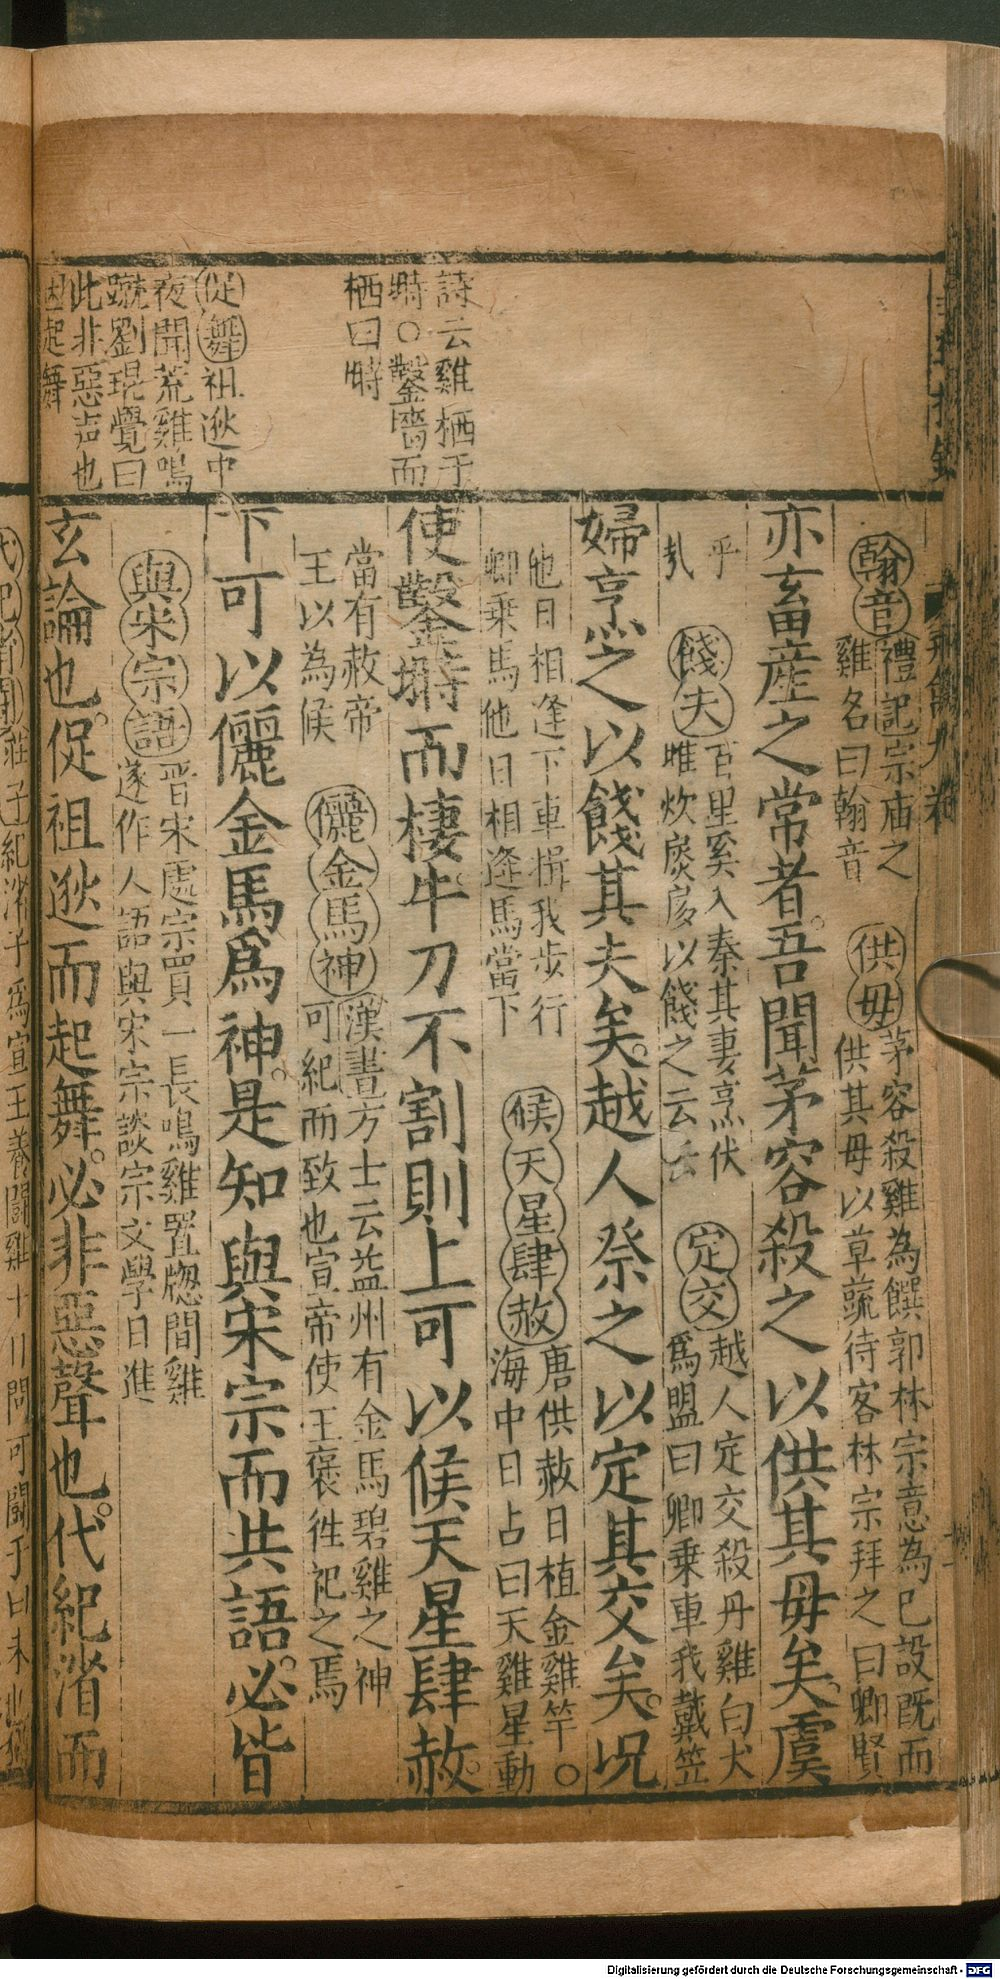 詩云雞栖于
塒○鑿墻而
栖曰塒
促舞祖逖中
夜聞荒雞鳴
蹴劉琨覺曰
此非惡声也
因起舞
翰音禮記宗庙之
雞名曰翰音
供毋茅容殺雞為饌郭林宗意為已設既而
供其毋以草蔬待客林宗拜之曰卿賢
亦畜産之常者吾聞茅容殺之以供其毋矣虞
乎
餞夫百里奚入秦其妻烹伏
唯炊扊扅以餞之云云
定交越人定交殺丹雞白犬
爲盟曰卿乗車我戴笠
婦烹之以餞其夫矣越人祭之以定其交矣况
他日相逢下車揖我步行
卿乗馬他日相逢馬當下
候天星肆赦唐供赦日植金雞竿○
海中日占曰天雞星動
使鑿塒而棲牛刀不割則上可以候天星肆赦
當有赦帝
王以為候
儷金馬神漢書方士云益州有金馬碧雞之神
可紀而致也宣帝使王褒徃祀之焉
下可以儷金馬爲神是知與宋宗而共語必皆
與宋宗語晋宋處宗買一長鳴雞置牕間雞
遂作人語與宋宗談宗文學日進
玄論也促祖逖而起舞必非惡聲也代紀渻而
莊子紀渻子爲宣王養鬪雞十日問可鬪于曰未
Digitalisierung gefördert durch die Deutsche Forschungsgemeinschaft - DFG